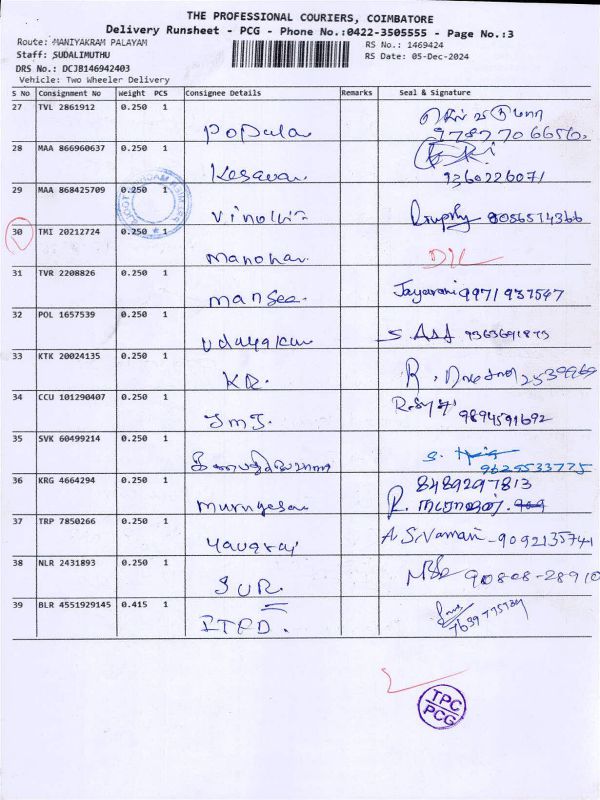 THE PROFESSIONAL COURIERS, COIMBATORE
Delivery Runsheet - PCG - Phone No.:0422-3505555 - Page No.:3
Route: MANIYAKRAM PALAYAM
RS No.: 1469424
Staff: SUDALIMUTHU
RS Date: 05-Dec-2024
DRS No.: DCJB146942403
Vehicle: Two Wheeler Delivery
S No Consignment No Weight PCS Consignee Details Remarks Seal & Signature
27 TVL 2861912 0.250 1
28 MAA 866960637 0.250 1
Kesavan 9360226071
29 MAA 868425709 0.250 1
8056574366
30 TMI 20212724 0.250 1
Manohar
31 TVR 2208826 0.250 1
Mansee Jayarani 9971937547
32 POL 1657539 0.250 1
Udayakum
33 KTK 20024135 0.250 1
KR. 2539969
34 CCU 101290407 0.250 1
9894591692
35 SVK 60499214 0.250 1
9629533775
36 KRG 4664294 0.250 1
8489297813
Murugesan
37 TRP 7850266 0.250 1
Yavaraj 9092135741
38 NLR 2431893 0.250 1
SUR. 90808-28910
39 BLR 4551929145 0.415 1
ITPD.
TPC
PCG